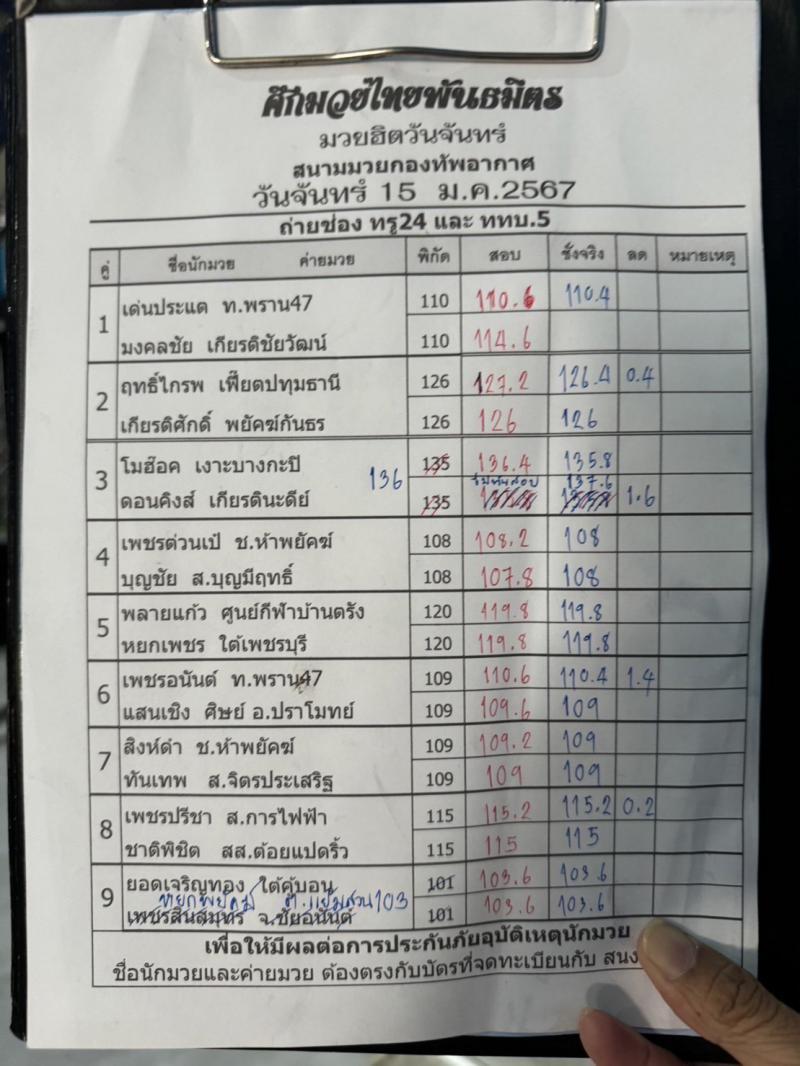 ศึกมวยไทยพันธมิตร
มวยฮิตวันจันทร์
สนามมวยกองทัพอากาศ
วันจันทร์ 15 ม.ค.2567
ถ่ายช่อง ทรู24 และ ททบ.5
คู่ ชื่อนักมวย ค่ายมวย พิกัด สอบ ชั่งจริง ลด หมายเหตุ
1 เด่นประแต ท.พราน47 110 110.6 110.4
มงคลชัย เกียรติชัยวัฒน์ 110 114.6
2 ฤทธิ์ไกรพ เฟี๊ยตปทุมธานี 126 127.2 126.4 0.4
เกียรติศักดิ์ พยัคฆ์กันธร 126 126 126
3 โมฮ๊อค เงาะบางกะปิ 136 135 136.4 135.8
ดอนคิงส์ เกียรตินะดีย์ 135 137.6 1.6
4 เพชรต่วนเป๋ ช.ห้าพยัคฆ์ 108 108.2 108
บุญชัย ส.บุญมีฤทธิ์ 108 107.8 108
5 พลายแก้ว ศูนย์กีฬาบ้านตรัง 120 119.8 119.8
หยกเพชร ใต้เพชรบุรี 120 119.8 119.8
6 เพชรอนันต์ ท.พราน47 109 110.6 110.4 1.4
แสนเชิง ศิษย์ อ.ปราโมทย์ 109 109.6 109
7 สิงห์ดำ ช.ห้าพยัคฆ์ 109 109.2 109
ทันเทพ ส.จิตรประเสริฐ 109 109 109
8 เพชรปรีชา ส.การไฟฟ้า 115 115.2 115.2 0.2
ชาติพิชิต สส.ต้อยแปดริ้ว 115 115 115
9 ยอดเจริญทอง ใต้คู้บอน 101 103.6 103.6
หยกพยัคฆ์ 103
เพชรสินสมุทร จ.ชัยอนันต์ 101 103.6 103.6
เพื่อให้มีผลต่อการประกันภัยอุบัติเหตุนักมวย
ชื่อนักมวยและค่ายมวย ต้องตรงกับบัตรที่จดทะเบียนกับ